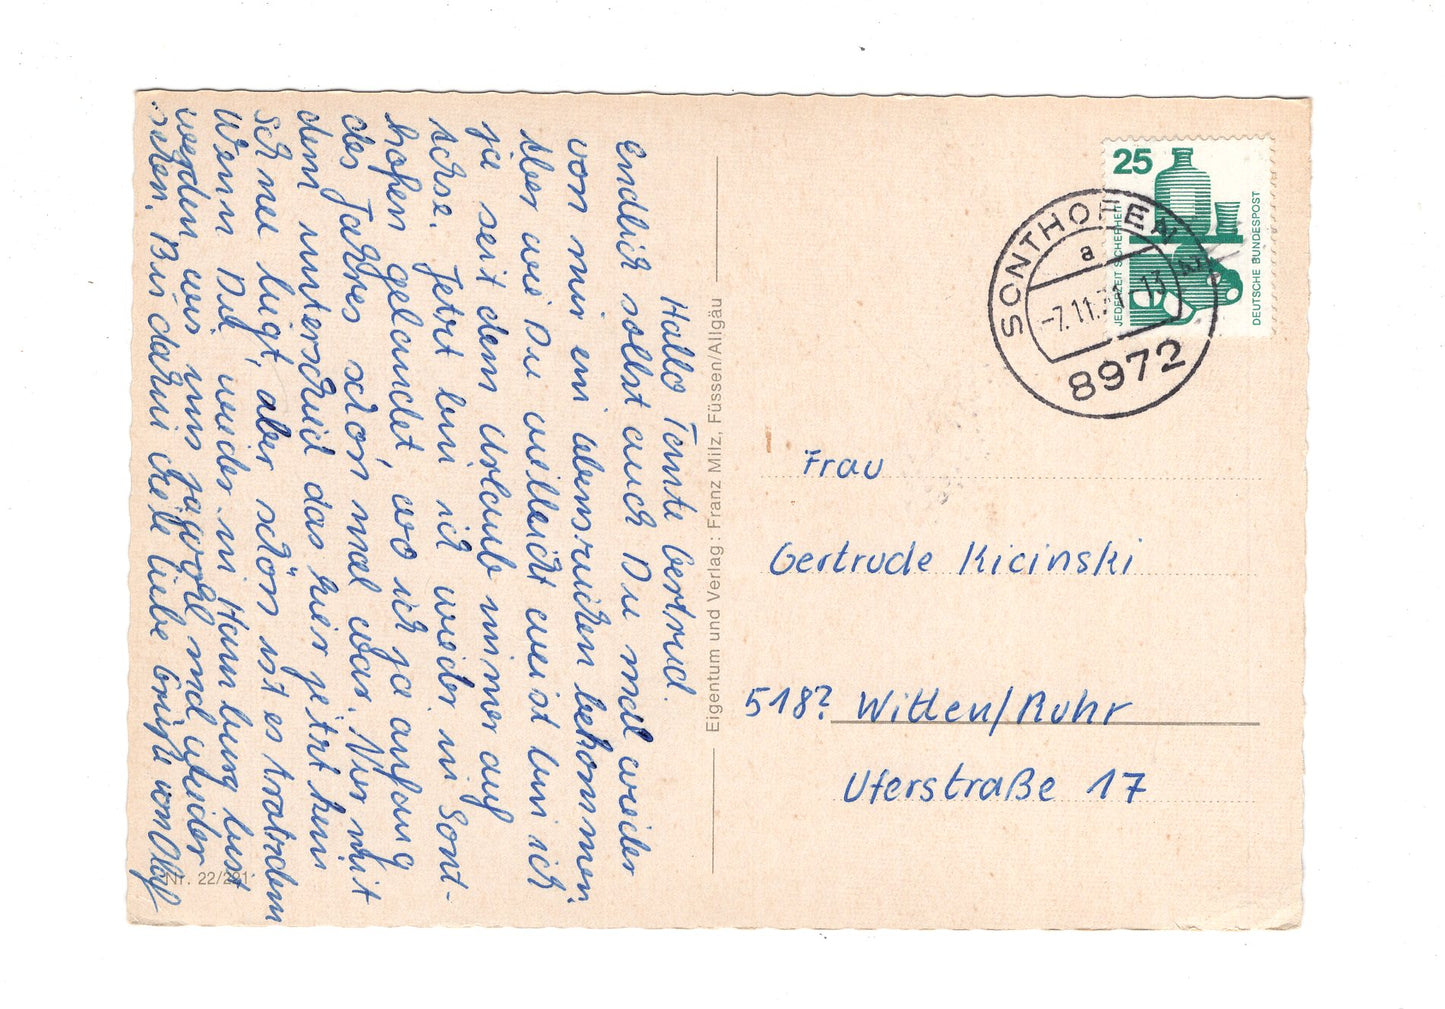 Hallo Tante Gertrud.
Endlich sollst auch Du mal wieder
von mir ein lebenszeichen bekommen.
Aber wie Du vielleicht weist bin ich
ja seit dem Urlaub immer auf
Achse. Jetzt bin ich wieder in Sont-
hofen gelandet, wo ich ja anfang
des Jahres schon mal war. Nur mit
dem unterschied das hier jetzt kein
Schnee liegt, aber schön ist es trotzdem
Wenn Du wieder in Hamburg bust
werden wir uns ja wohl mal wieder
sehen. Bis dahin viele liebe Grüße von Olaf
Nr. 22/291
Eigentum und Verlag: Franz Milz, Füssen/Allgäu
25
JEDERZEIT SICHERHEIT
DEUTSCHE BUNDESPOST
SONTHOFEN 2
a
-7.11.
8972
Frau
Gertrude Kicinski
518? Witten/Ruhr
Uferstraße 17